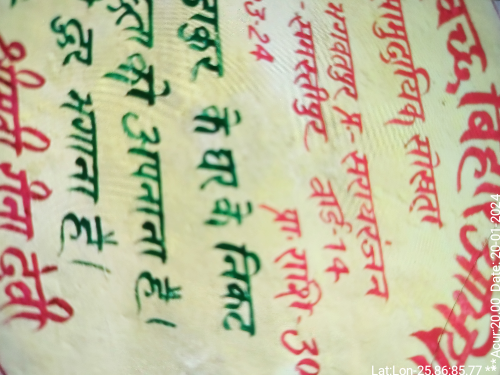 सामुदायिक सोख्ता
भगवतपुर प्र॰ सरायरंजन
समस्तीपुर वार्ड-14
3-24 प्रा॰ राशि-30
ठाकुर के घर के निकट
को अपनाना है।
दूर भगाना है।
श्रीमती मीना देवी
Lat:Lon-25.86:85.77 ***Acur:20.00 Date: 20-01-2024